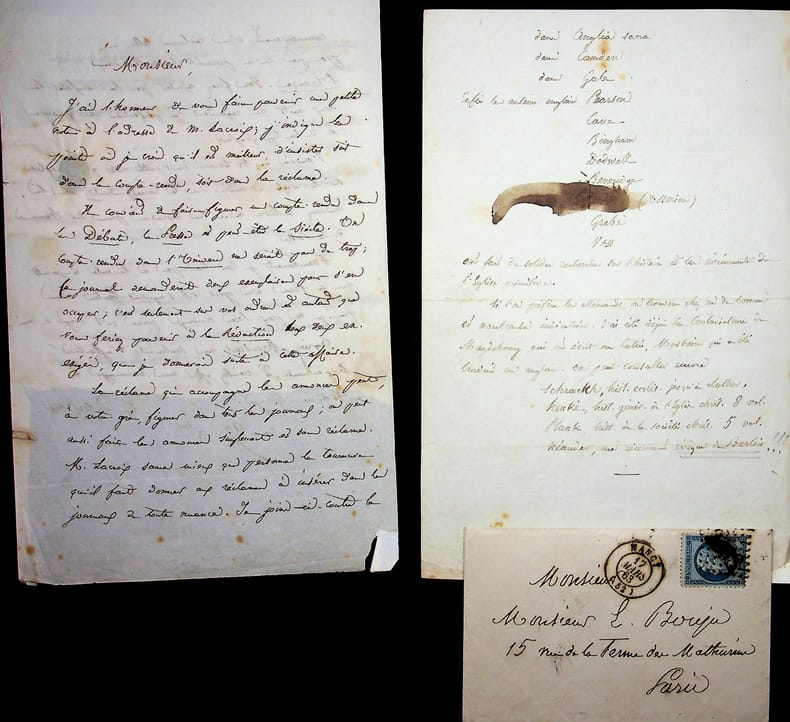 Monsieur,
J'ai l'honneur de vous faire parvenir une petite
note à l'adresse de M. Lacroix; j'indique les
points où je crois qu'il est meilleur d'insister soit
dans le compte-rendu, soit dans la réclame.
Il convient de faire figurer un compte rendu dans
les Débats, la Presse et peut être le Siècle. Un
compte rendu dans l'Univers ne serait pas de trop;
ce journal demanderait deux exemplaires pour s'en
occuper; c'est seulement sur vos ordres et autant que
vous feriez parvenir à la Rédaction les deux ex.
exigés, que je donnerai suite à cette affaire.
La réclame qui accompagne les annonces peut,
à votre gré, figurer dans tous les journaux; on peut
aussi faire les annonces simplement et sans réclame.
M. Lacroix saura mieux que personne la tournure
qu'il faut donner aux réclames à insérer dans les
journaux de toute nuance. Je joins ci-contre la
dans Anglia sacra
dans Camden
dans Gale.
Enfin les auteurs anglais Pearson
Cave
Bingham
Dodwell
Beveridge
(Usserius)
Grabe
Voss
ont fait de solides recherches sur l'histoire et les événements de
l'Eglise primitive.
Si l'on préfère les allemands, on trouvera chez eux de bonnes
et nombreuses indications. J'ai cité déjà les Centuriateurs de
Magdebourg qui ont écrit en latin, Mosheim qui a été
traduit en anglais. on peut consulter encore
Schroeckh, hist. ecclés. jusqu'à Luther,
Henke, hist. génér. de l'Eglise chrét. 8 vol.
Plank hist. de la société chrét. 5 vol.
Néander, mort récemment évêque de Berlin !!!
NANCY
17
MARS
63
(52)
Monsieur
Monsieur L. Bouju
15 rue de la Ferme des Mathurins
Paris